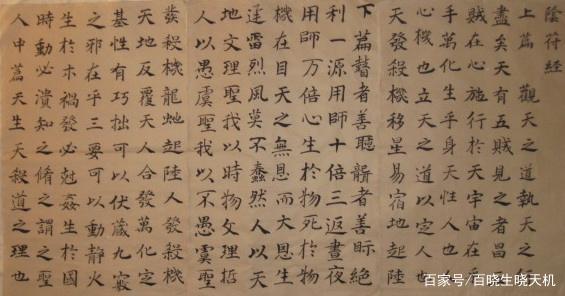 陰符經
上篇 觀天之道執天之行
盡矣天有五賊見之者昌五
賊在心施行於天宇宙在乎
手萬化生乎身天性人也人
心機也立天之道以定人也
天發殺機移星易宿地起陸
下篇瞽者善聽聾者善眎絕
利一源用師十倍三返晝夜
用師万倍心生於物死於物
機在目天之無恩而大恩生
迅雷烈風莫不蠢然人以天
地文理聖我以時物文理哲
人以愚虞聖我以不愚虞聖
發殺機龍虵起陸人發殺機
天地反覆天人合發萬化定
基性有巧拙可以伏藏九竅
之邪在乎三要可以動靜火
生於木禍發必尅姦生於國
時動必潰知之脩之謂之聖
人中篇天生天殺道之理也
百家号/百晓生晓天机